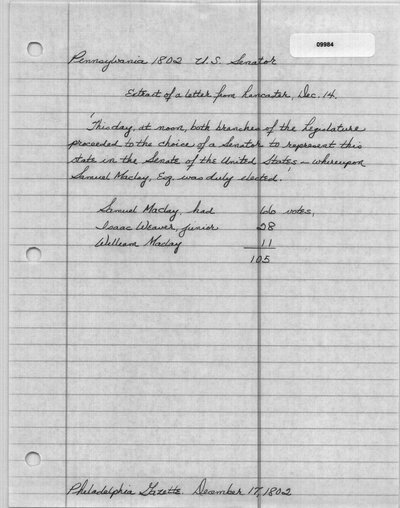 09984
Pennsylvania 1802 U.S. Senator
Extract of a letter from Lancaster, Dec. 14.
'This day, at noon, both branches of the Legislature
proceeded to the choice of a Senator to represent this
state in the Senate of the United States - whereupon
Samuel Maclay, Esq. was duly elected.'
Samuel Maclay, had 66 votes,
Isaac Weaver, junior 28
William Maclay 11
105
Philadelphia Gazette. December 17, 1802